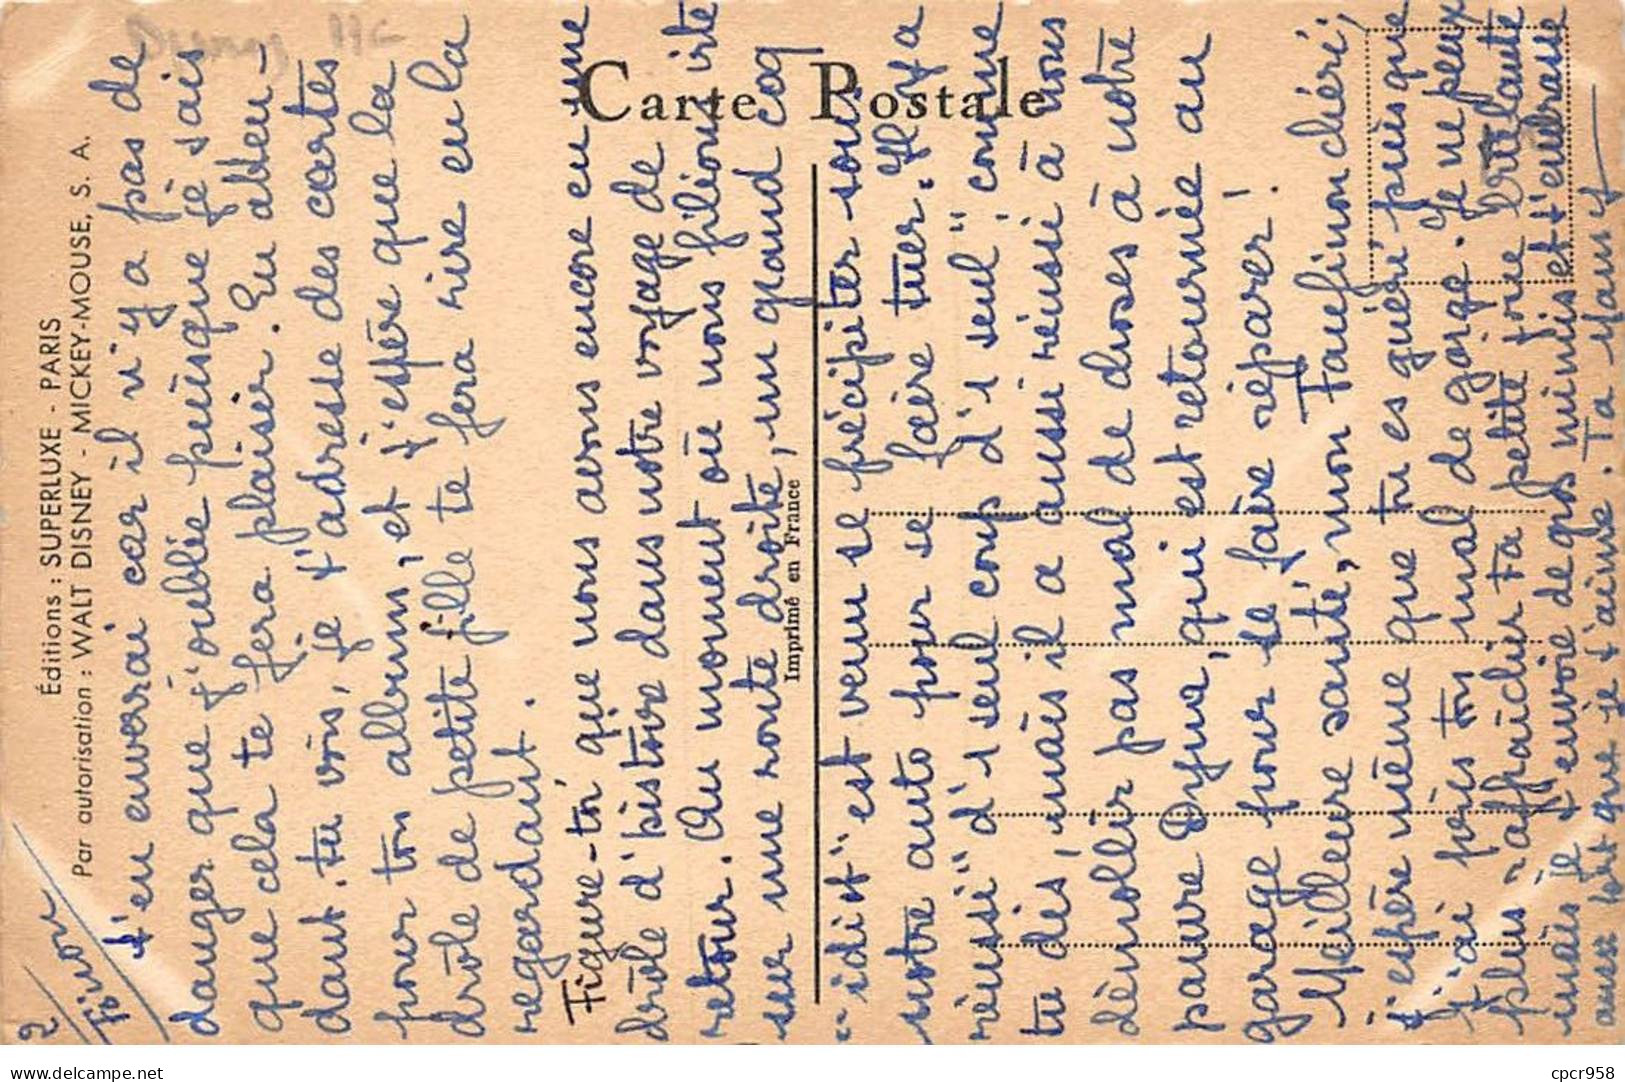 Carte Postale
Éditions : SUPERLUXE - PARIS
Par autorisation : WALT DISNEY - MICKEY-MOUSE, S. A.
Imprimé en France
2
t'en enverrai car il n'y a pas de
danger que j'oublie puisque je sais
que cela te fera plaisir. En atten-
dant. tu vois, je t'adresse des cartes
pour ton album, et j'espère que la
drôle de petite fille te fera rire en la
regardant.
Figure-toi que nous avons encore eu une
drôle d'histoire dans notre voyage de
retour. Au moment où nous filions
sur une route droite, un grand coq
"idiot" est venu se précipiter sous
notre auto pour se faire tuer. Il y a
réussi "d'1 seul coup d'1 seul" comme
tu dis, mais il a aussi réussi à nous
démolir pas mal de choses à notre
pauvre Dyna, qui est retournée au
garage pour se faire réparer!
Meilleure santé, mon Fanfinon chéri,
j'espère même que tu es guéri puisque
j'ai pris ton mal de gorge. Je ne peux
plus rafraîchir ta petite joue brûlante
mais je t'envoie de gos mimis et t'embrasse
aussi fort que je t'aime. Ta Mamy
cpcr958